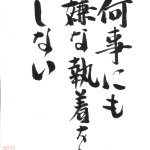 何事にも
嫌な執着を
しない